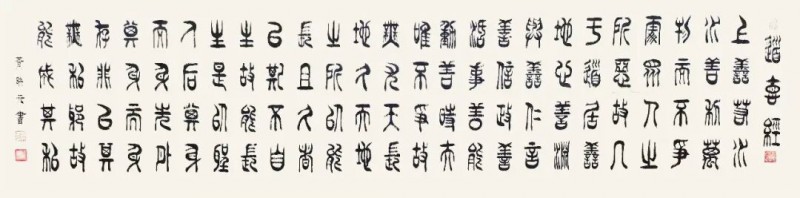 道悳經
上善若水
水善利萬
物而不爭
處眾人之
所惡故几
于道居善
地心善淵
與善仁言
善信政善
治事善能
動善時夫
唯不爭故
無尤天長
地久天地
之所以能
長且久者
以其不自
生故能長
生是以聖
人后其身
而身先外
其身而身
存非以其
無私邪故
能成其私